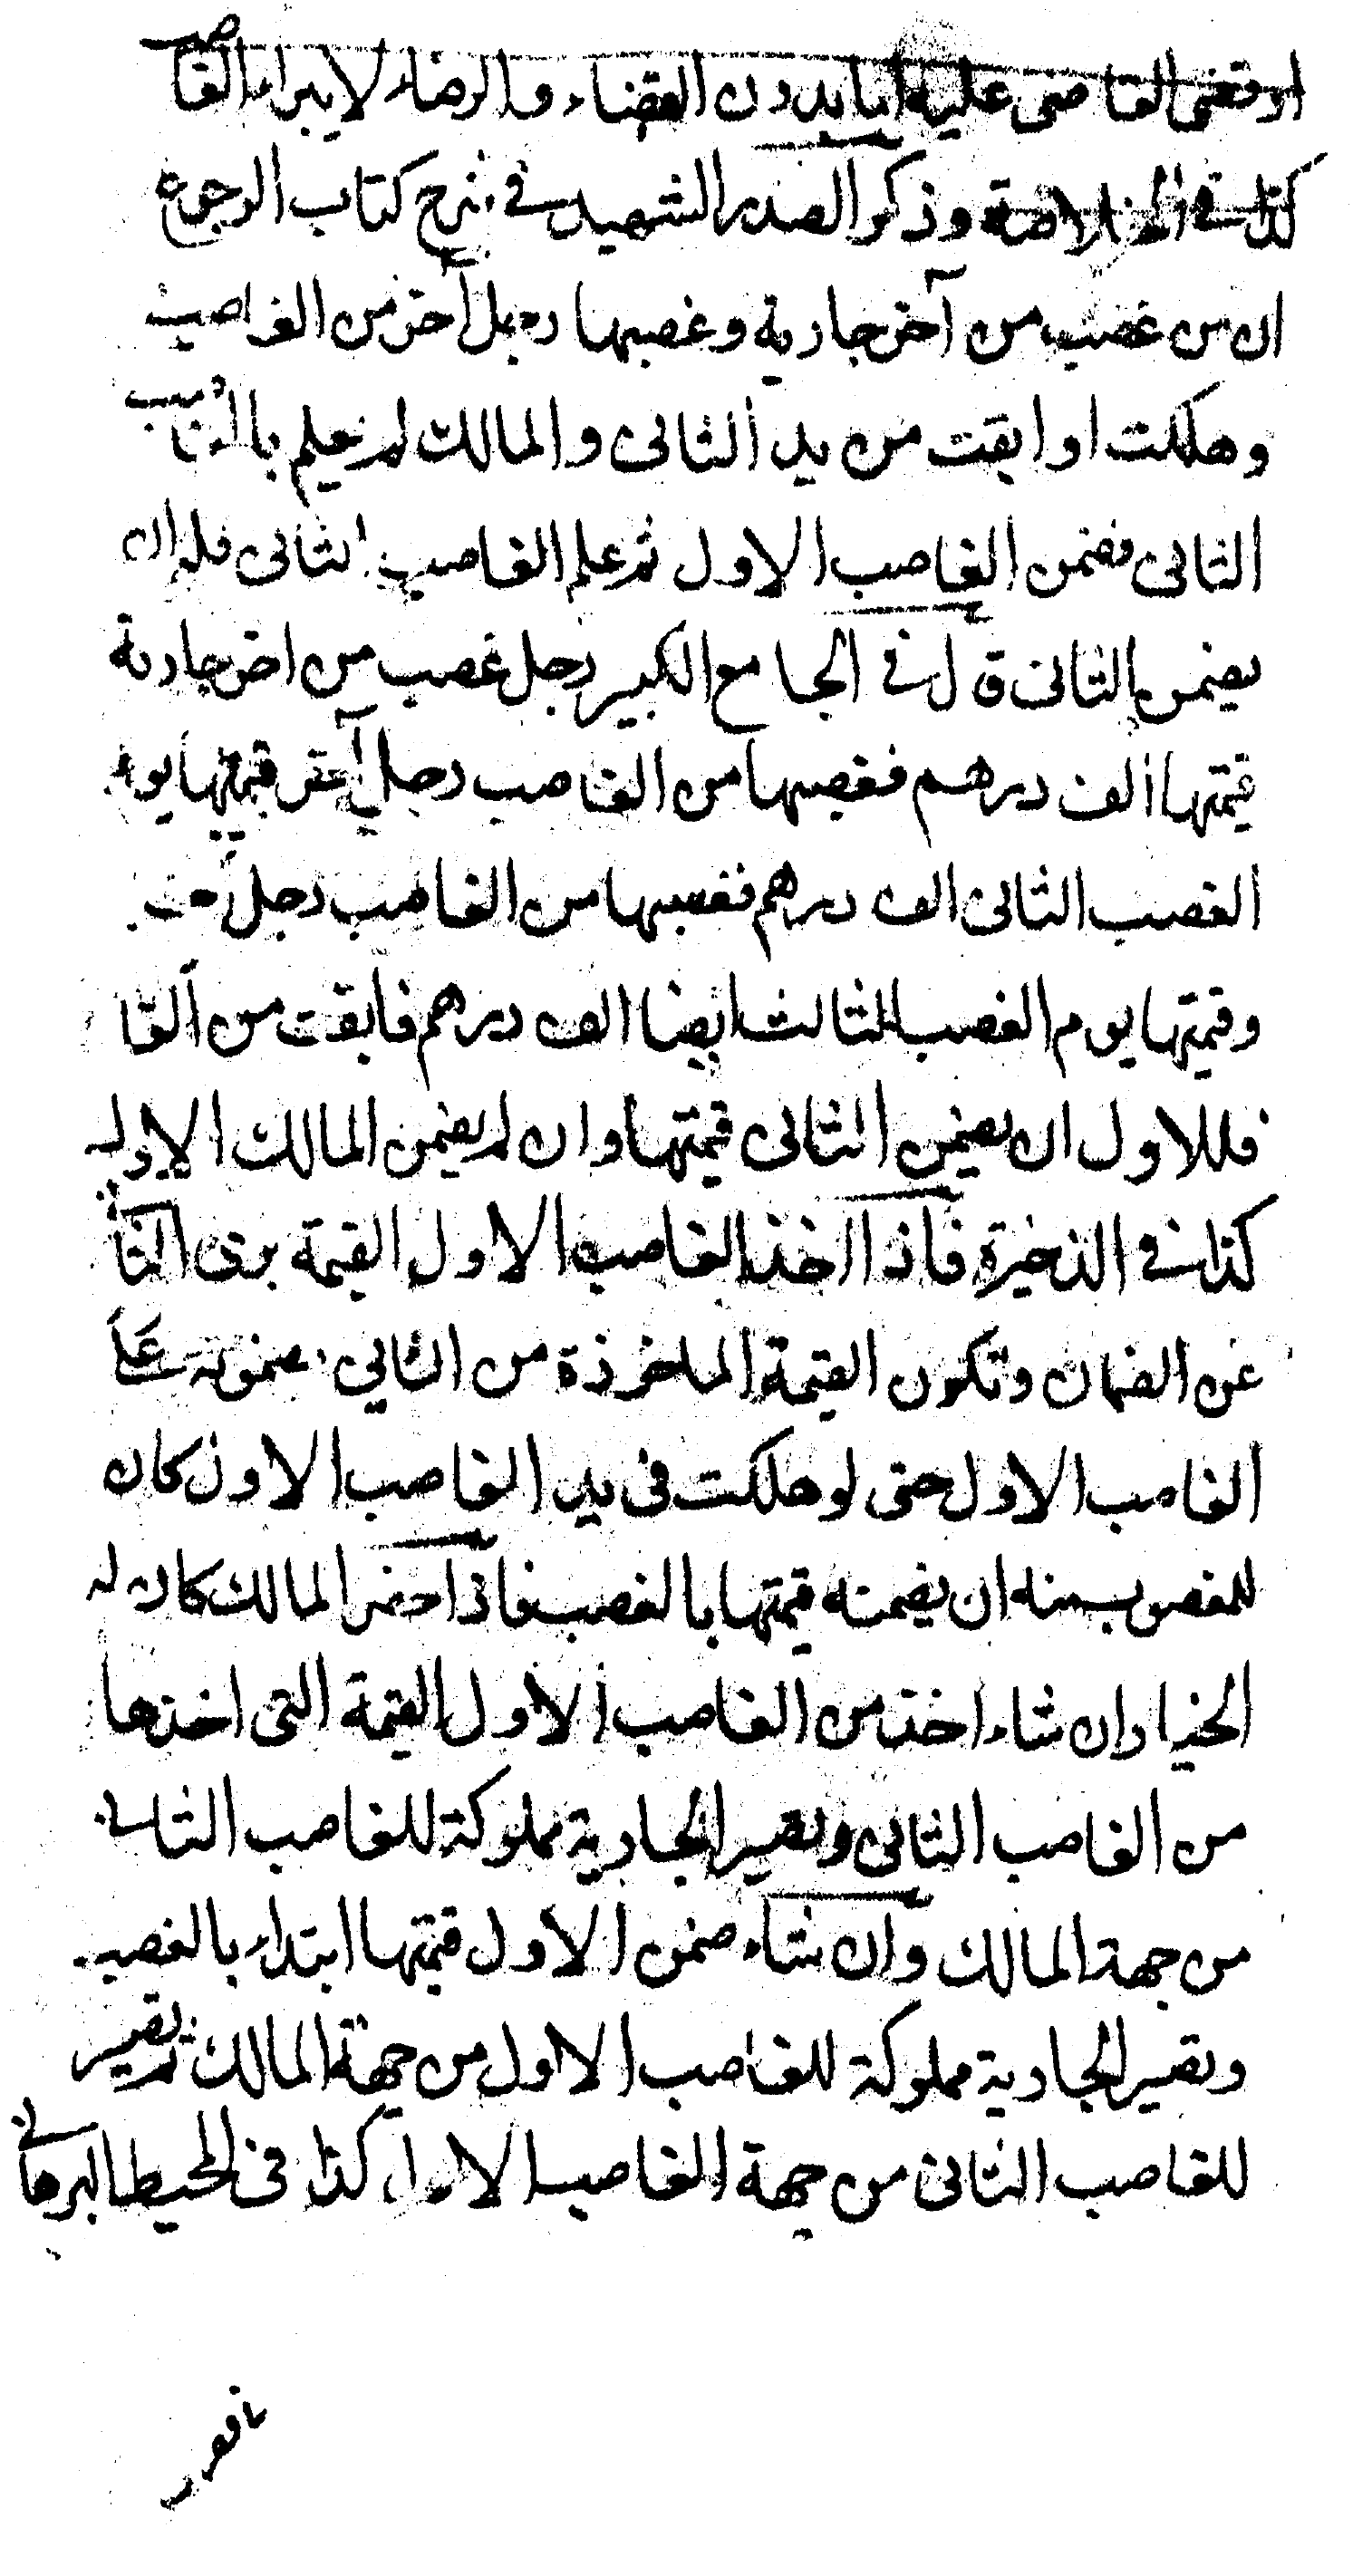 او قضى القاضى عليه اما بدون القضاء والرضاء لا يبراء الغاصب
كذا في الخلاصة وذكر الصدر الشهيد في شرح كتاب الرجوع
ان من غصب من آخر جارية وغصبها رجل آخر من الغاصب
وهلكت او ابقت من يد الثانى والمالك لم يعلم بالغاصب
الثانى فضمن الغاصب الاول ثم علم الغاصب الثانى فله ان
يضمن الثانى قال في الجامع الكبير رجل غصب من اخر جارية
قيمتها الف درهم فغصبها من الغاصب رجل آخر قيمتها يوم
الغصب الثانى الف درهم فغصبها من الغاصب رجل آخر
وقيمتها يوم الغصب الثالث ايضا الف درهم فابقت من الغا
فللاول ان يضمن الثانى قيمتها وان لم يضمن المالك الاول
كذا في الذخيرة فاذا اخذ الغاصب الاول القيمة برى الثانى
عن الضمان وتكون القيمة الماخوذة من الثاني مضمونة على
الغاصب الاول حتى لو هلكت فى يد الغاصب الاول كان
للمغصوب منه ان يضمنه قيمتها بالغصب فاذا حضر المالك كان له
الخيار ان شاء اخذ من الغاصب الاول القيمة التى اخذها
من الغاصب الثانى وتصير الجارية مملوكة للغاصب الثانى
من جهة المالك وان شاء ضمن الاول قيمتها ابتداء بالغصب
وتصير الجارية مملوكة للغاصب الاول من جهة المالك ثم تصير
للغاصب الثانى من جهة الغاصب الاول كذا فى المحيط البرهانى